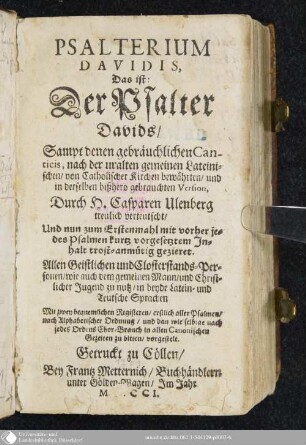 PSALTERIUM
DAVIDIS,
Das ist:
Der Psalter
Davids/
Sampt denen gebräuchlichen Can-
ticis, nach der uralten gemeinen Lateini-
schen/ von Catholischer Kirchen bewährten/ und
in derselben bißhero gebrauchten Version,
Durch H. Casparen Ulenberg
treulich verteutscht/
Und nun zum Erstenmahl mit vorher je-
des Psalmen kurtz vorgesetztem In-
halt trost-anmütig gezieret.
Allen Geistlichen und Closterstands-Per-
sonen/ wie auch dem gemeinen Mann/ und Christ-
licher Jugend zu nutz/ in beyde Latein- und
Teutsche Sprachen
Mit zween bequemlichen Registeren/ erstlich aller Psalmen/
nach Alphabetischer Ordnung/ und dan/ wie selbige nach
jedes Ordens Chor-Brauch in allen Canonischen
Gezeiten zu bitten/ vorgestelt.
Getruckt zu Cöllen/
Bey Frantz Metternich/ Buchhändlern
unter Gölden-Wagen/ Im Jahr
M CCI.
Universitäts- und
Landesbibliothek Düsseldorf